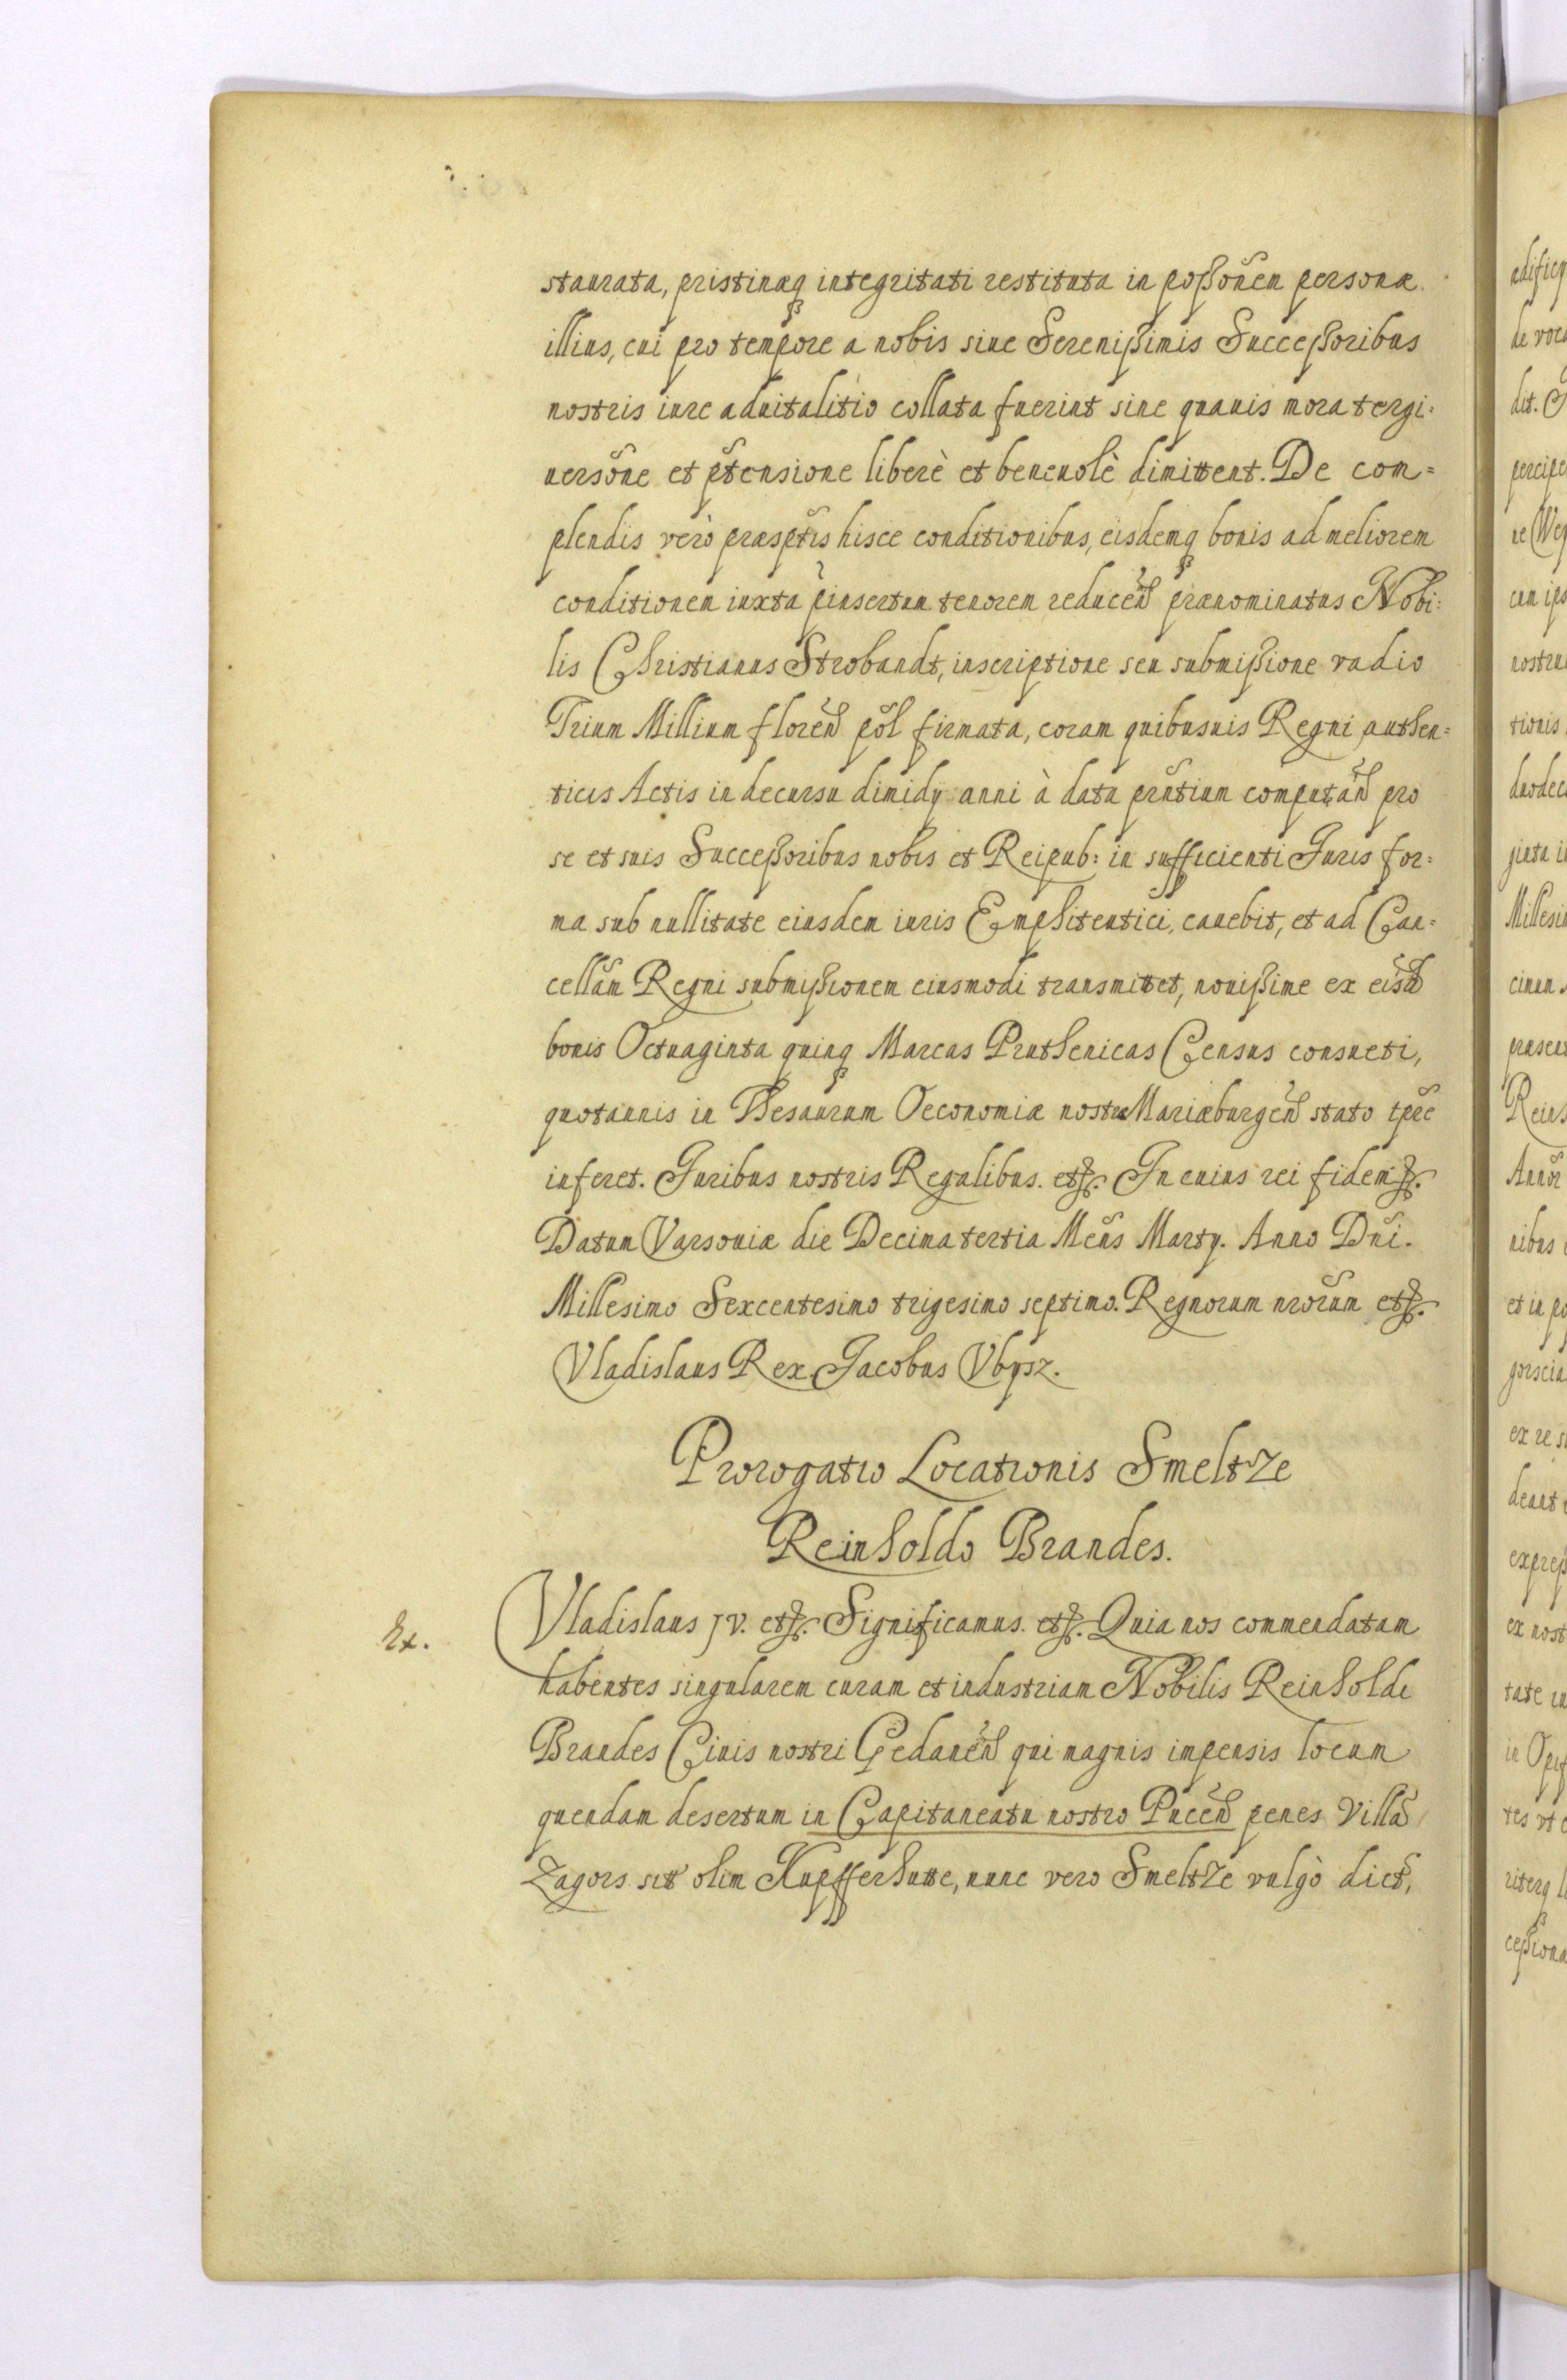 staurata, pristinæq₃ integritati restituta in poßōnem personæ
illius, cui pro tempore a nobis siue Serenißimis Succeßoribus
nostris iure aduitalitio collata fuerint sine quauis mora tergi=
uersōne et p̃tensione liberè et beneuolè dimittent. De com=
plendis verò præsp̃tis hisce conditionibus, eisdemq₃ bonis ad meliorem
conditionem iuxta p̃insertum tenorem reduceñ prænominatus Nobi=
lis Christianus Strobandt, inscriptione seu submißione vadio
Trium Millium floreñ pōl firmata, coram quibusuis Regni authen=
ticis Actis in decursu dimidij anni à data pñtium computañ pro
se et suis Succeßoribus nobis et Reipub: in sufficienti Juris for=
ma sub nullitate eiusdem iuris Emphiteutici, cauebit, et ad Can=
cellām Regni submißionem eiusmodi transmittet, nouißime ex eisd̃
bonis Octuaginta quinq₃ Marcas Pruthenicas Census consueti,
quotannis in Thesaurum Oeconomiæ nostræ Mariæburgeñ stato tp̃re
inferet. Juribus nostris Regalibus. etc. In cuius rei fidem etc.
Datum Varsouiæ die Decima tertia Meñs Martij. Anno Dñi.
Millesimo Sexcentesimo trigesimo septimo. Regnorum nr̃orum etc.
Vladislaus Rex. Jacobus Vbysz.
Prorogatio Locationis Smeltze
Reinholdo Brandes.
Ex.
Vladislaus IV. etc. Significamus. etc. Quia nos commendatam
habentes singularem curam et industriam Nobilis Reinholdi
Brandes Ciuis nostri Gedaneñ qui magnis impensis locum
quendam desertum in Capitaneatu nostro Puceñ penes Villā
Zagors sit̃ olim Kupfferhutte, nunc vero Smeltze vulgò dict̃,